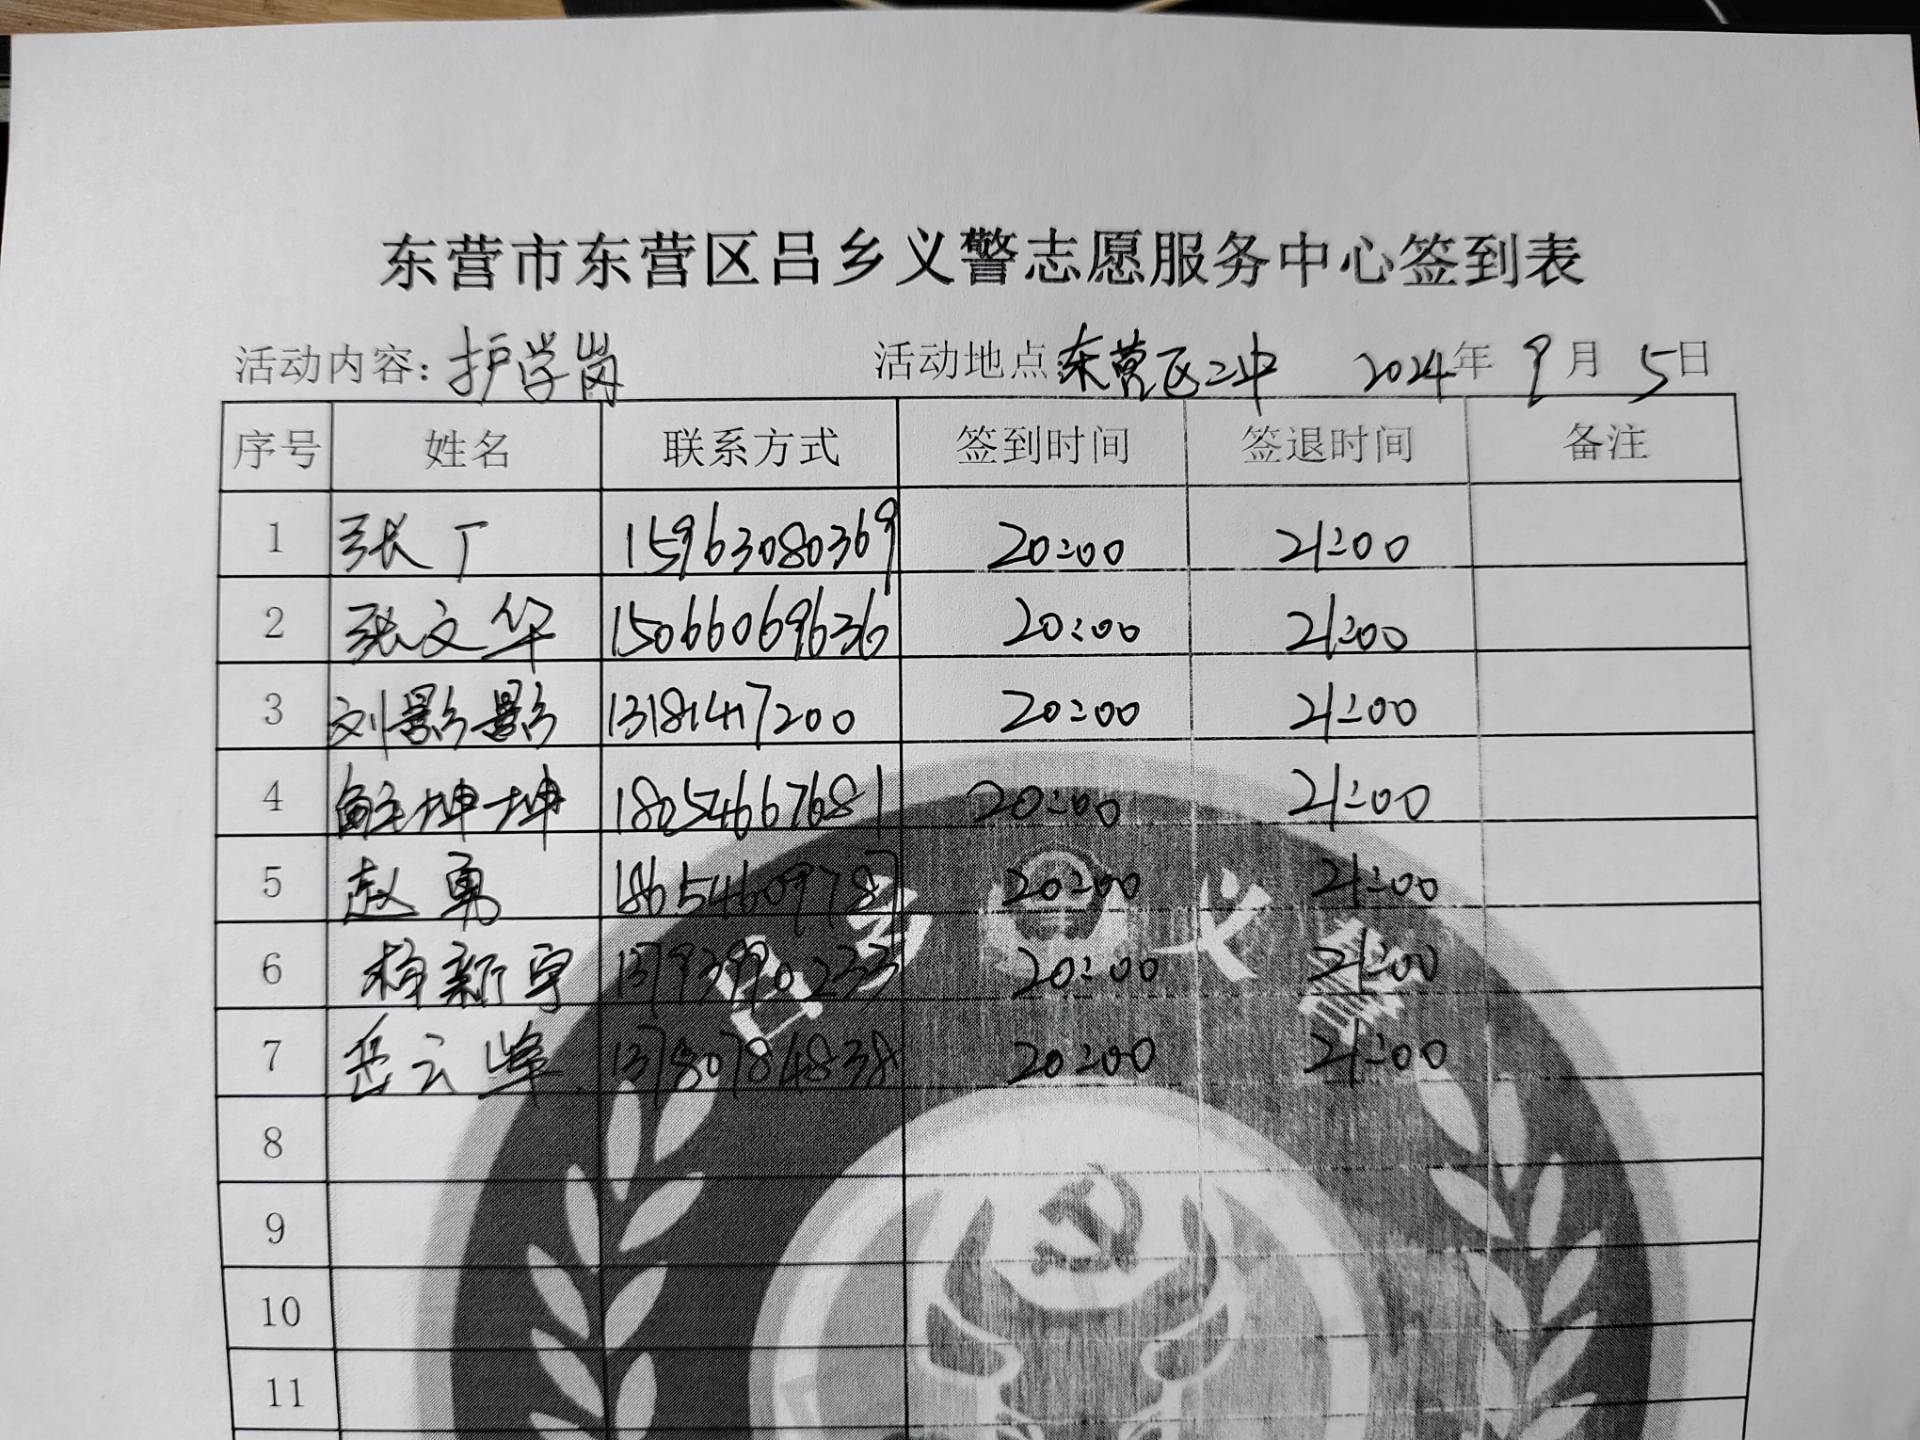 东营市东营区吕乡义警志愿服务中心签到表
活动内容: 护学岗 活动地点: 东营区二中 2024年 9月 5日
序号 姓名 联系方式 签到时间 签退时间 备注
1 张丁 15963080369 20:00 21:00
2 张文华 15066069636 20:00 21:00
3 刘影影 1318147200 20:00 21:00
4 解坤坤 18054667681 20:00 21:00
5 赵勇 18654609787 20:00 21:00
6 新宇 13793990233 20:00 21:00
7 岳云峰 13780784838 20:00 21:00
8
9
10
11
吕乡义警